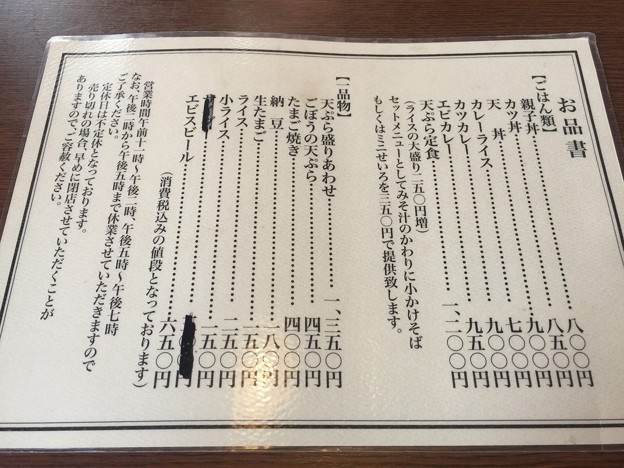 お品書
【ごはん類】
親子丼……………八〇〇円
カツ丼……………八五〇円
天　丼……………九〇〇円
カレーライス……………七〇〇円
カツカレー……………九五〇円
エビカレー……………九五〇円
天ぷら定食……………一、二〇〇円
(ライスの大盛り二五〇円増)
セットメニューとしてみそ汁のかわりに小かけそば
もしくはミニせいろを三五〇円で提供致します。
【一品物】
天ぷら盛りあわせ……………一、三五〇円
ごぼうの天ぷら……………四五〇円
たまご焼き……………四〇〇円
納　豆……………一八〇円
生たまご……………一五〇円
ライス……………二五〇円
小ライス……………一五〇円
エビスビール……………六五〇円
(消費税込みの値段となっております)
営業時間午前十一時〜午後二時、午後五時〜午後七時
なお、午後二時から午後五時まで休業させていただきますので
ご了承ください。
定休日は不定休となっております。
売り切れの場合、早めに閉店させていただくことが
ありますのでご容赦ください。